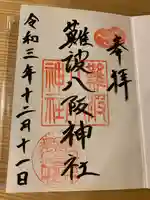 奉拝
難波八阪神社
令和三年十二月十一日